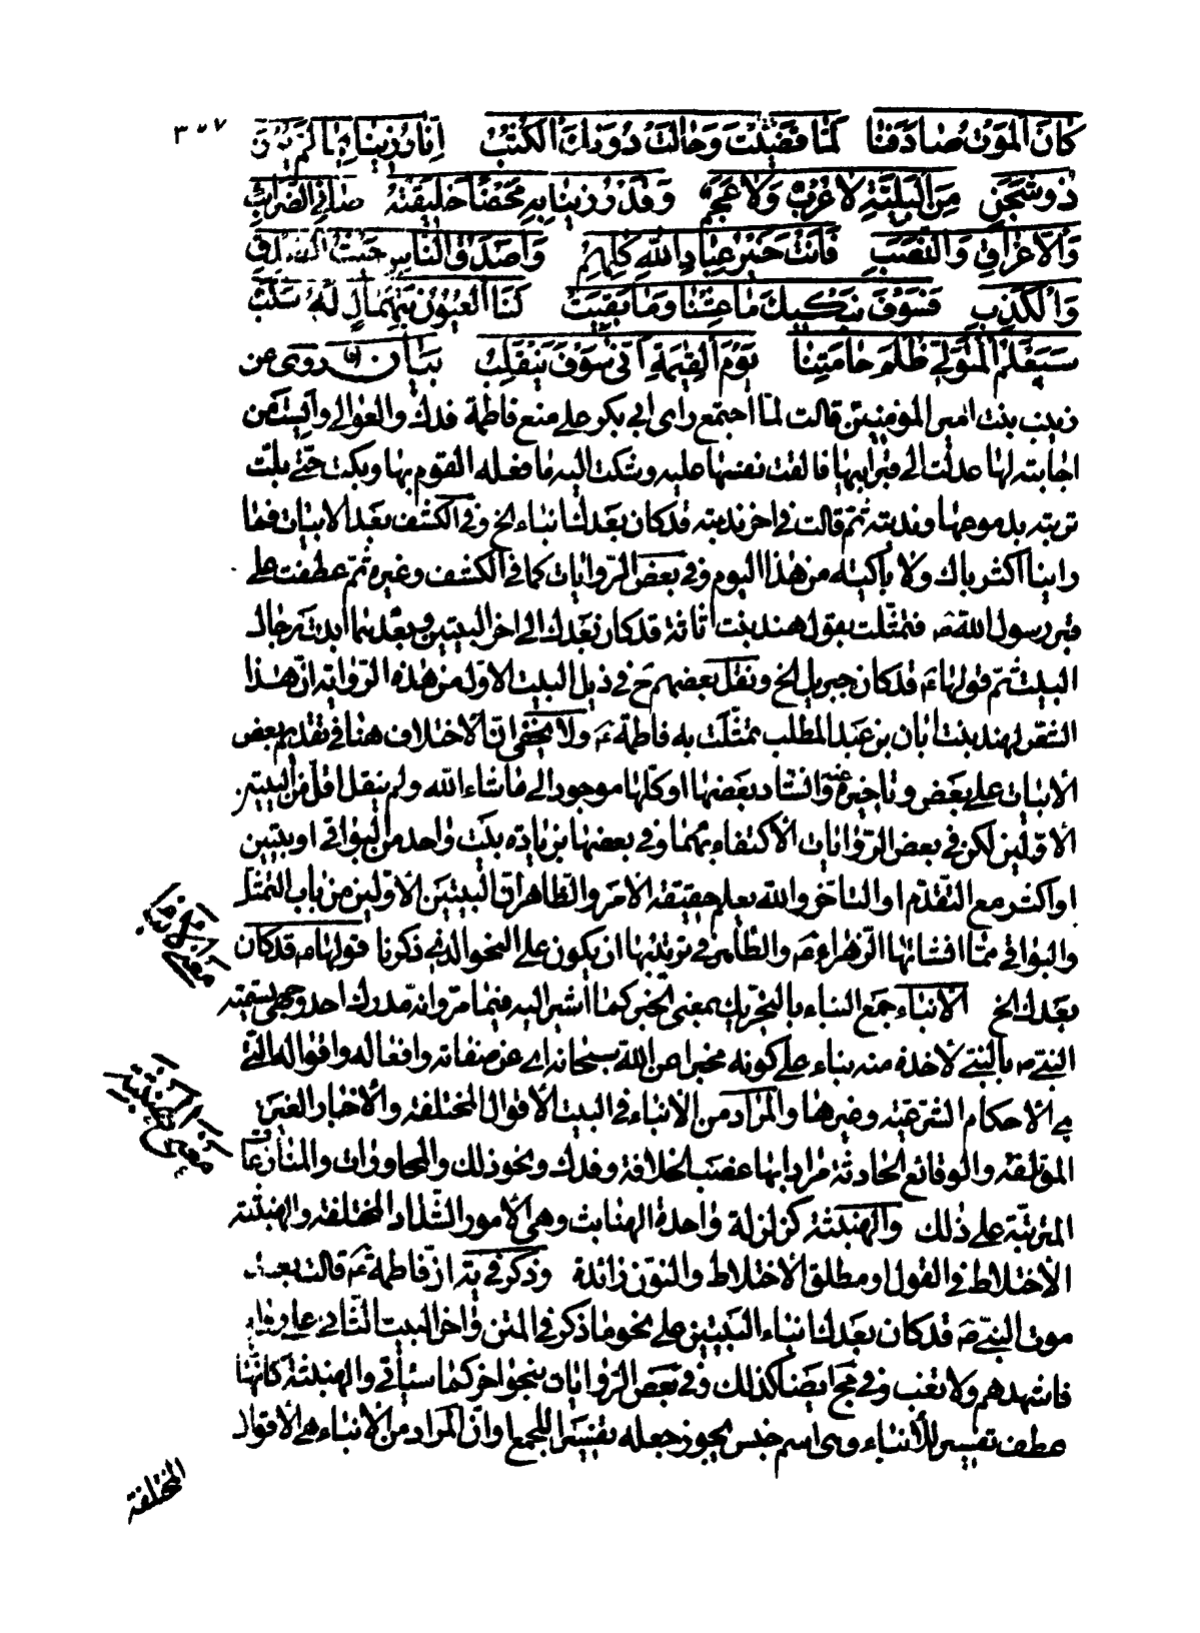 ٣٠٧
كَانَ المَوْتُ صَادَفَنَا لَمَّا قَضَيْتَ وَحَالَتْ دُونَكَ الكُتُبُ اِنَّا رُزِينَا بِمَا لَمْ يُرْزَ
ذُو شَجَنٍ مِنَ البَرِيَّةِ لا عُرْبٌ وَلا عَجَمٌ وَقَدْ رُزِينَا بِهِ مَحْضًا خَلِيقَتُهُ صَافِي الضَّرَائِبِ
وَالأَعْرَاقِ وَالنَّصَبِ فَاَنْتَ خَيْرُ عِبَادِ اللهِ كُلِّهِمُ وَاَصْدَقُ النَّاسِ حَيْثُ الصِّدْقِ
وَالكَذِبِ فَسَوْفَ نَبْكِيكَ مَا عِشْنَا وَمَا بَقِيَتْ لَنَا العُيُونُ بِتِهْمَالٍ لَهُ سَكَبُ
سَيَعْلَمُ المُتَوَلِّي ظُلْمَ حَامَتِنَا يَوْمَ القِيمَةِ اَنّى سَوْفَ يَنْقَلِبُ بَيَان روى عن
زينب بنت امير المؤمنين قالت لمّا اجتمع رأى ابي بكر على منع فاطمة فدك والعوالي وآيست من
اجابته لها عدلت الى قبر ابيها فالقت نفسها عليه وشكت اليه ما فعله القوم بها وبكت حتّى بلّت
تربته بدموعها وندبته ثمّ قالت في اخر ندبته قد كان بعدك انباء الخ وفي الكشف بعد الابيات فما
راينا اكثر باك ولا باكية من هذا اليوم وفي بعض الرّوايات كما في الكشف وغيره ثمّ عطفت على
قبر رسول الله ص فتمثّلت بقول هند بنت اثاثة قد كان بعدك الى اخر البيتين وبعدهما ابدت رجال
البيت ثمّ قولها ع قد كان جبريل الخ ونقل بعضهم ح في ذيل البيت الاوّل من هذه الرّواية انّ هذا
الشعر لهند بنت ابان بن عبد المطلب تمثّلت به فاطمة ع ولا يخفى انّ الاختلاف هنا في تقديم بعض
الابيات على بعض وتاخيره عنه وانشاد بعضها او كلّها موجود الى ما شاء الله ولم ينقل اقلّ من البيتين
الاوّلين لكن في بعض الرّوايات الاكتفاء بهما وفي بعضها بزيادة بيت واحد من البواقي او بيتين
او اكثر مع التّقدّم او التّاخّر والله يعلم حقيقة الامر والظّاهر انّ البيتين الاوّلين من باب التمثّل
والبواقي ممّا افشاتها الزّهراء ع والظّاهر في ترتيبها ان يكون على النحو الذي ذكرنا قولها ع قد كان
بعدك الخ الانباء جمع النباء بالتحريك بمعنى الخبر كما اشير اليه فيما مرّ وانّه مدرك احد وجهى تسميته
النبيّ ص بالنبيّ لاخذه منه بناء على كونه مخبرا عن الله سبحانه اى عن صفاته وافعاله واقواله الّتي
هي الاحكام الشرعيّة وغيرها والمراد من الانباء في البيت الاقوال المختلفة والاخبار الغير
المؤتلفة والوقائع الحادثة مرادا بها غصب الخلافة وفدك ونحو ذلك والمحاورات والمنازعات
المترتّبة على ذلك والهنبثة كزلزلة واحدة الهنابث وهي الامور الشّداد المختلفة والهنبثة
الاختلاط في القول او مطلق الاختلاط والنون زائدة وذكر في ية انّ فاطمة ع قالت بعد
موت النبيّ ص قد كان بعدك انباء البيتين على نحو ما ذكر في المتن واخر البيت الثاني على
فاشهدهم ولا تغب وفي مج ايضا كذلك وفي بعض الرّوايات بنحو اخر كما سيأتي والهنبثة كانّها
عطف تفسير للأنباء وهى اسم جنس يجوز جعله تفسيرا للجمع او انّ المراد من الانباء هي الاقوال
المختلفة